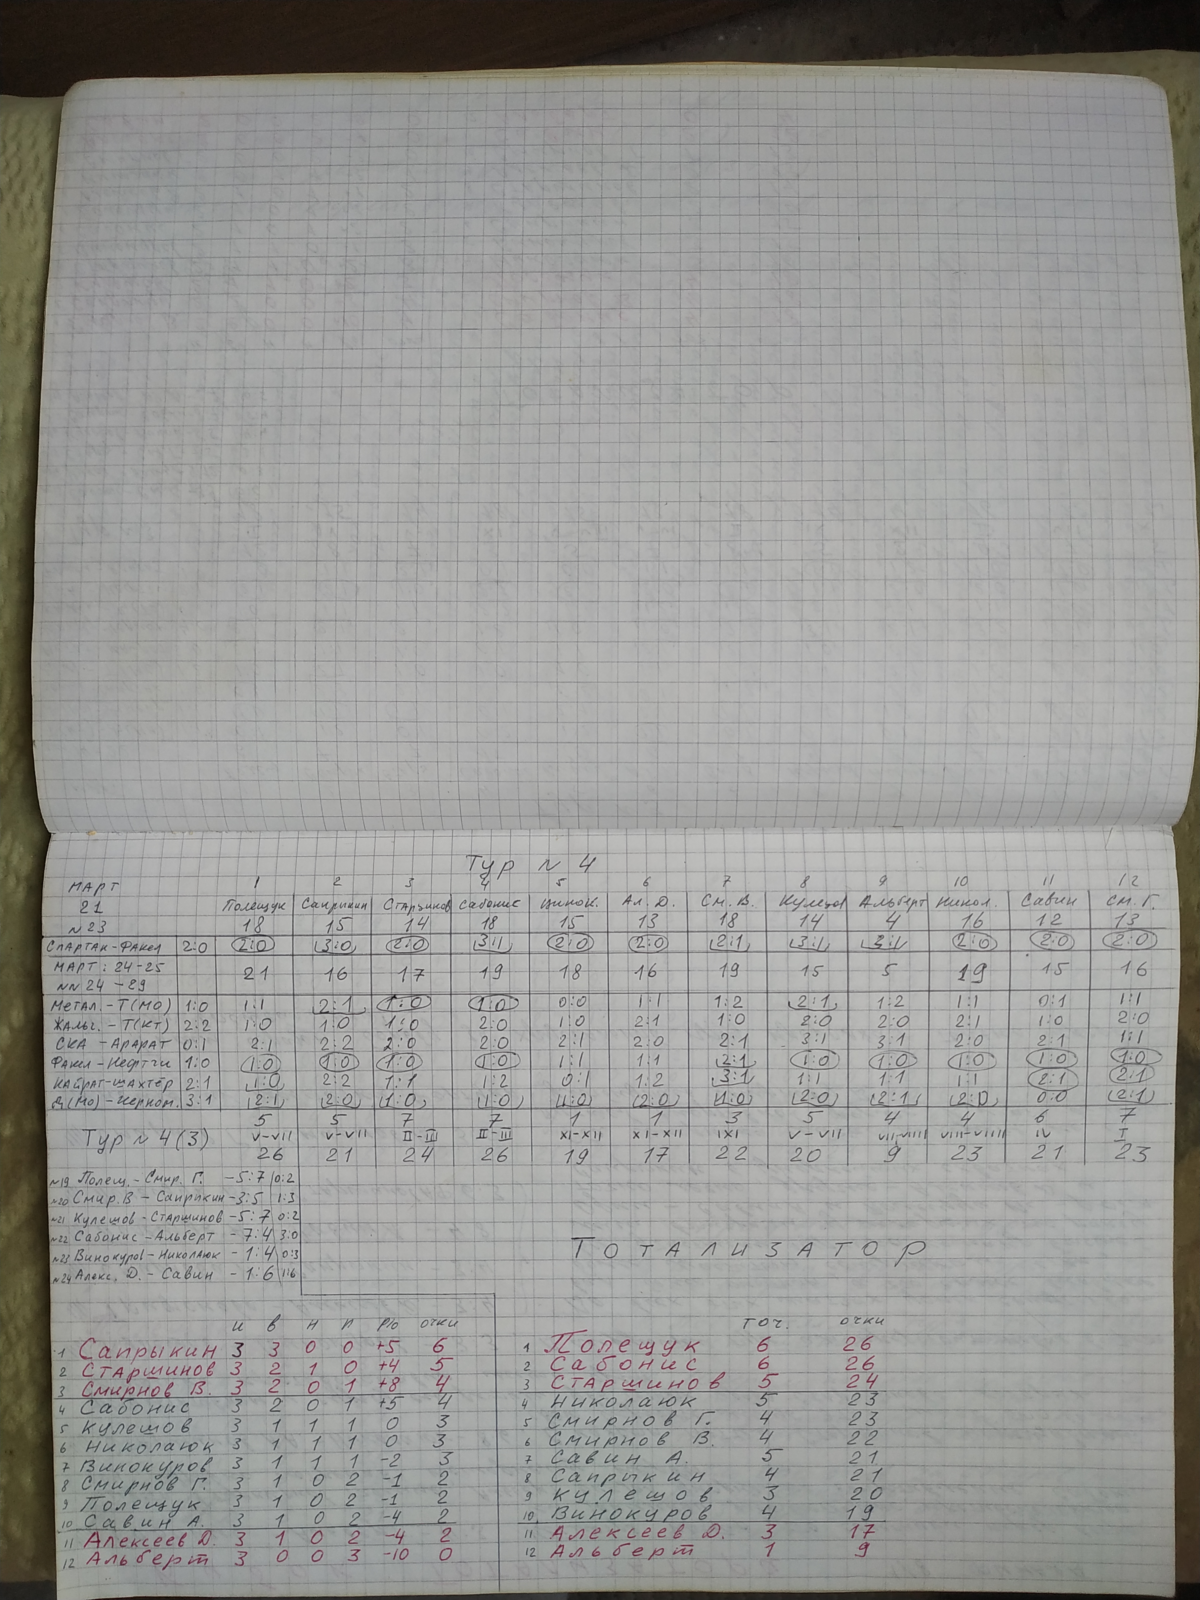 Тур № 4
МАРТ 1 2 3 4 5 6 7 8 9 10 11 12
21 Полещук Сапрыкин Старшинов Сабонис Винок. Ал. Д. См. В. Кулешов Альберт Никол. Савин См. Г.
№ 23 18 15 14 18 15 13 18 14 4 16 12 13
Спартак-Факел 2:0 2:0 3:0 2:0 3:1 2:0 2:0 2:1 3:1 3:1 2:0 2:0 2:0
МАРТ: 24-25
№№ 24-29 21 16 17 19 18 16 19 15 5 19 15 16
Метал.-Т(МО) 1:0 1:1 2:1 1:0 1:0 0:0 1:1 1:2 2:1 1:2 1:1 0:1 1:1
Жальг.-Т(КТ) 2:2 1:0 1:0 1:0 2:0 1:0 2:1 1:0 2:0 2:0 2:1 1:0 2:0
СКА-Арарат 0:1 2:1 2:2 2:0 2:0 2:1 2:0 2:1 3:1 3:1 2:0 2:1 1:1
Факел-Нефтчи 1:0 1:0 1:0 1:0 1:0 1:1 1:1 2:1 1:0 1:0 1:0 1:0 1:0
Кайрат-Шахтёр 2:1 1:0 2:2 1:1 1:2 0:1 1:2 3:1 1:1 1:1 1:1 2:1 2:1
Д(МО)-Черном. 3:1 2:1 2:0 1:0 1:0 1:0 2:0 1:0 2:0 2:1 2:0 0:0 2:1
5 5 7 7 1 1 3 5 4 4 6 7
Тур № 4(3) V-VII V-VII II-III II-III XI-XII XI-XII IXI V-VII VIII-VIIII VIII-VIIII IV I
26 21 24 26 19 17 22 20 9 23 21 23
№19 Полещ.-Смир. Г. -5:7 0:2
№20 Смир. В-Сапрыкин-3:5 1:3
№21 Кулешов-Старшинов-5:7 0:2
№22 Сабонис-Альберт-7:4 3:0
№23 Винокуров-Николаюк-1:4 0:3
№24 Алекс. Д.-Савин-1:6 1:6
Тотализатор
И В Н П Р/О очки
1 Сапрыкин 3 3 0 0 +5 6
2 Старшинов 3 2 1 0 +4 5
3 Смирнов В. 3 2 0 1 +8 4
4 Сабонис 3 2 0 1 +5 4
5 Кулешов 3 1 1 1 0 3
6 Николаюк 3 1 1 1 0 3
7 Винокуров 3 1 1 1 -2 3
8 Смирнов Г. 3 1 0 2 -1 2
9 Полещук 3 1 0 2 -1 2
10 Савин А. 3 1 0 2 -4 2
11 Алексеев Д. 3 1 0 2 -4 2
12 Альберт 3 0 0 3 -10 0
точ. очки
1 Полещук 6 26
2 Сабонис 6 26
3 Старшинов 5 24
4 Николаюк 5 23
5 Смирнов Г. 4 23
6 Смирнов В. 4 22
7 Савин А. 5 21
8 Сапрыкин 4 21
9 Кулешов 3 20
10 Винокуров 4 19
11 Алексеев Д. 3 17
12 Альберт 1 9